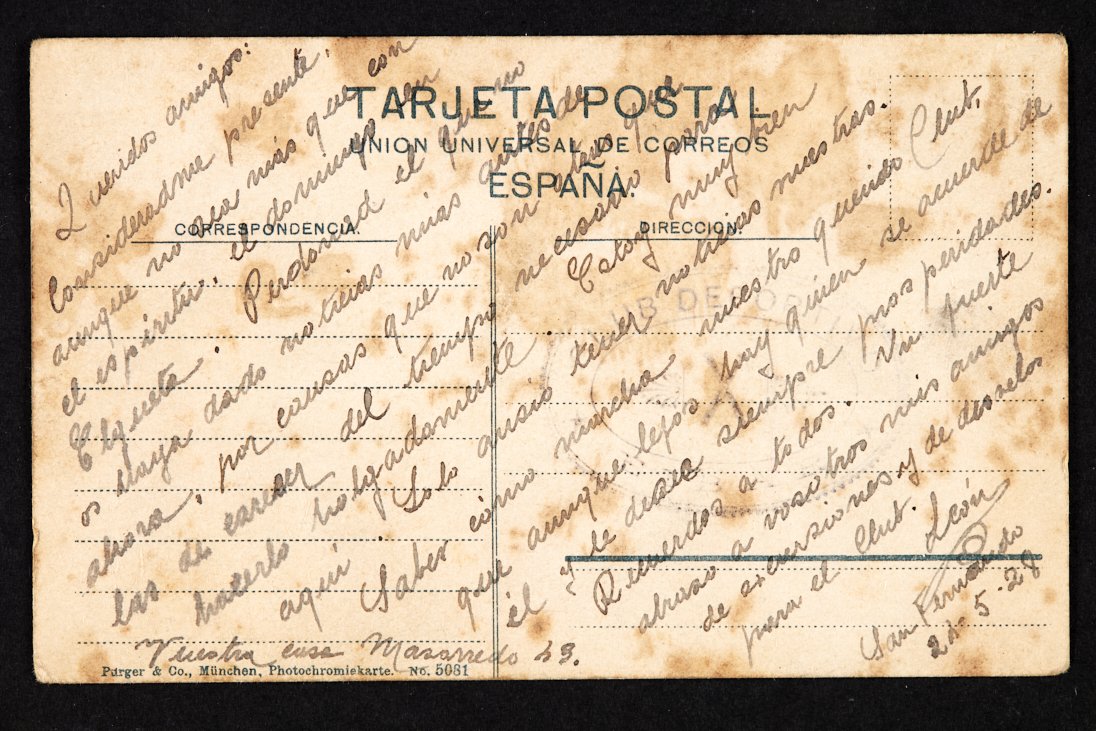 TARJETA POSTAL
UNION UNIVERSAL DE CORREOS
ESPAÑA.
CORRESPONDENCIA.
DIRECCION.
Queridos amigos:
Consideradme presente,
aunque no sea más que con
el espiritu, el domingo en
Elgueta. Perdonad el que no
os haya dado noticias mias antes de
ahora, por causas que no son otras que
las de carecer del tiempo necesario para
hacerlo holgadamente. Estoy muy bien
aqui. Solo ansío tener noticias vuestras.
Saber cómo marcha nuestro querido Club,
que aunque lejos hay quien se acuerde de
él y le desee siempre prosperidades.
Recuerdos a todos. Un fuerte
abraso a vosotros mis amigos
de excursiones y de desvelos
para el Club. León
San Fernando
24-5-28
Vuestra casa Masarredo
CLUB DEPOR
Purger & Co., München, Photochromiekarte. No. 5081